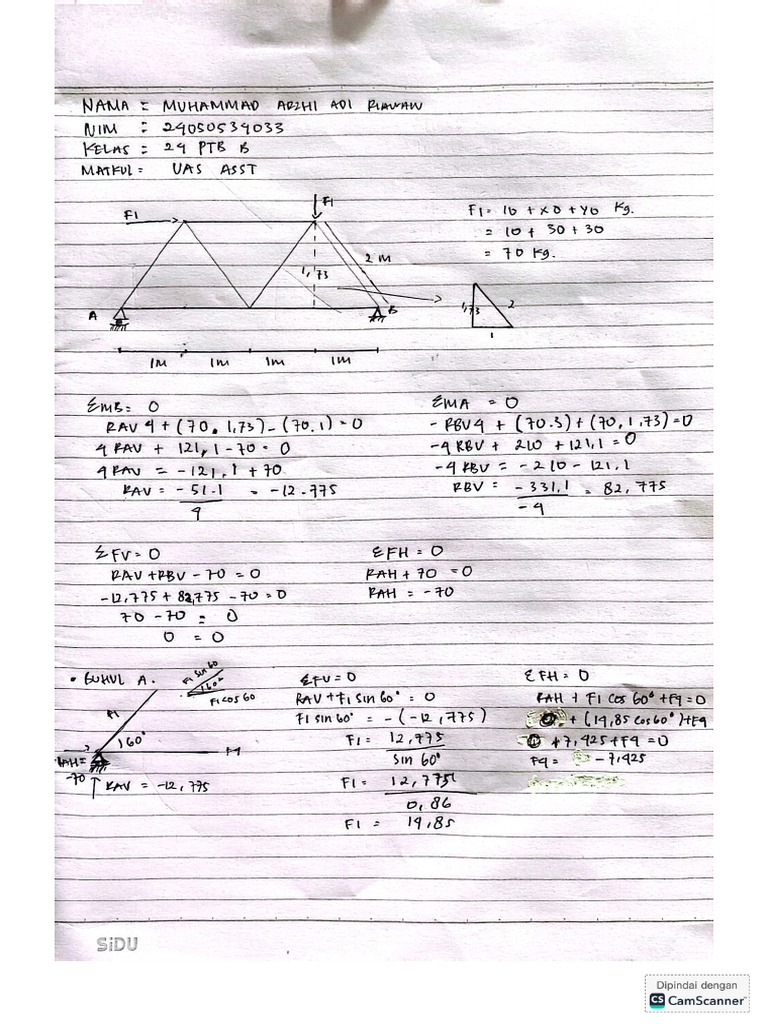 NAMA = MUHAMMAD ARZHI ADI RIAWAN
NIM : 24050534033
KELAS = 24 PTB B
MATKUL = UAS ASST
F1
F1
2 M
1,73
A
B
1M 1M 1M 1M
F1 = 10 + X0 + Y0 Kg.
= 10 + 30 + 30
= 70 Kg.
1,73
2
1
ΣMB = 0
RAV 4 + (70 . 1,73) - (70.1) = 0
4 RAV + 121,1 - 70 = 0
4 RAV = -121,1 + 70
RAV = -51.1 = -12.775
4
ΣMA = 0
-RBV 4 + (70.3) + (70,1,73) = 0
-4 RBV + 210 + 121,1 = 0
-4 RBV = -210 - 121,1
RBV = -331,1 = 82,775
-4
ΣFV = 0
RAV + RBV - 70 = 0
-12,775 + 82,775 - 70 = 0
70 - 70 = 0
0 = 0
ΣFH = 0
RAH + 70 = 0
RAH = -70
• BUHUL A.
F1 sin 60
60°
F1 cos 60
F1
60°
F9
RAH =
-70
RAV = -12,775
ΣFV = 0
RAV + F1 sin 60° = 0
F1 sin 60° = -(-12,775)
F1 = 12,775
sin 60°
F1 = 12,775
0,86
F1 = 14,85
ΣFH = 0
RAH + F1 cos 60° + F9 = 0
+ (14,85 cos 60°) + F9
+ 7,425 + F9 = 0
F9 = -7,425
SiDU
Dipindai dengan
CS CamScanner